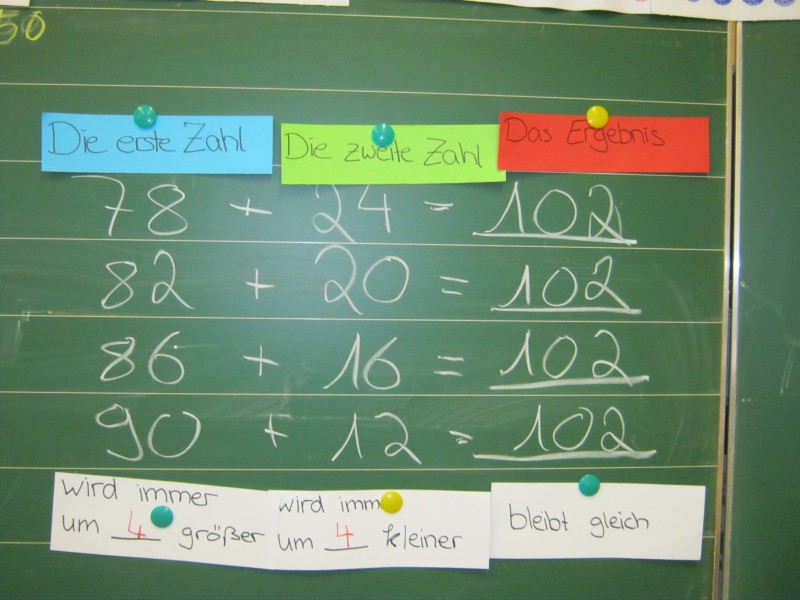 50
Die erste Zahl Die zweite Zahl Das Ergebnis
78 + 24 = 102
82 + 20 = 102
86 + 16 = 102
90 + 12 = 102
wird immer
um 4 größer
wird imm
um 4 kleiner
bleibt gleich